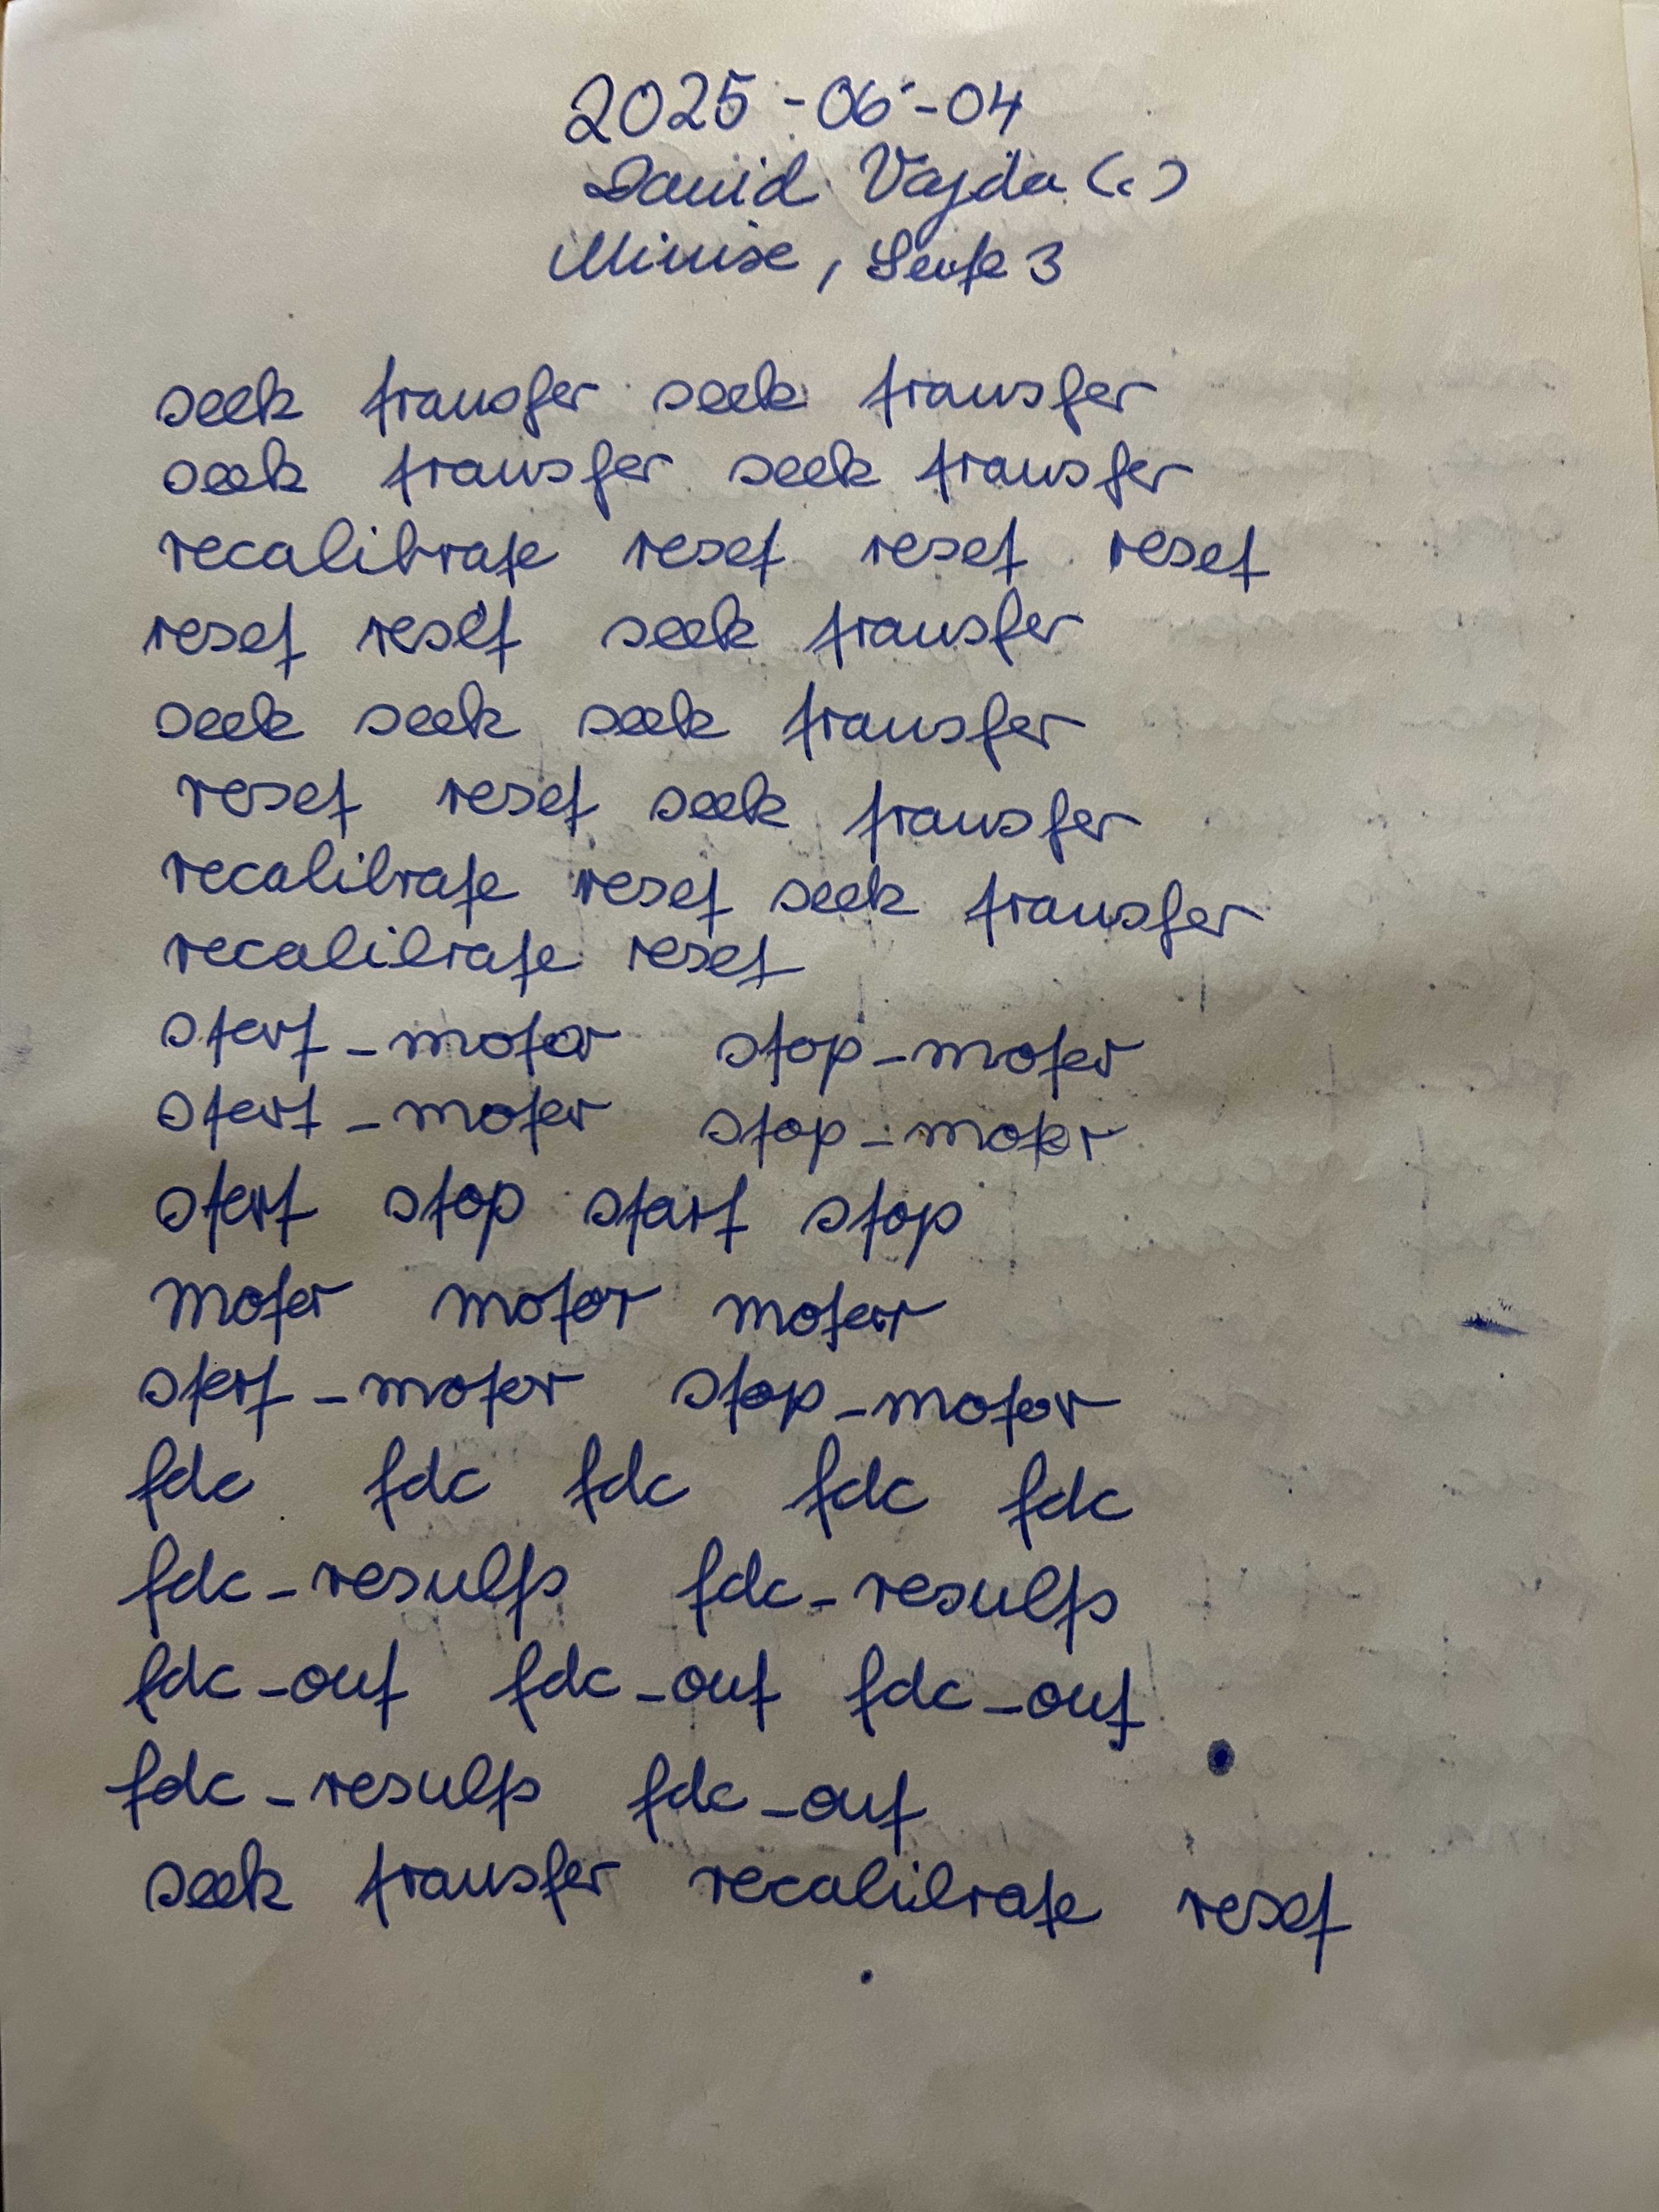 2025-06-04
David Vajda (c)
Minix, Seite 3
seek transfer seek transfer
seek transfer seek transfer
recalibrate reset reset reset
reset reset seek transfer
seek seek seek transfer
reset reset seek transfer
recalibrate reset seek transfer
recalibrate reset
start_motor stop_motor
start_motor stop_motor
start stop start stop
motor motor motor
start_motor stop_motor
fdc fdc fdc fdc fdc
fdc_results fdc_results
fdc_out fdc_out fdc_out
fdc_results fdc_out
seek transfer recalibrate reset